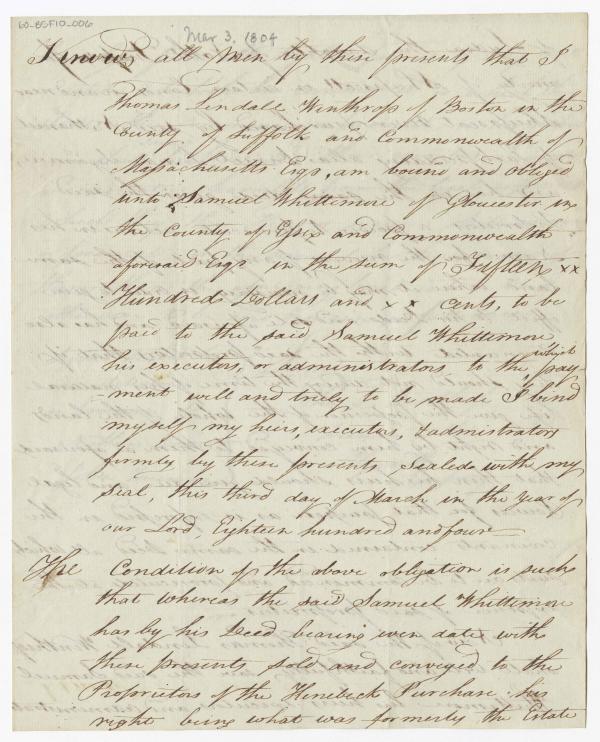 60-BSF10-006
Mar 3. 1804
Know all Men by these presents that I
Thomas Lendall Winthrop of Boston in the
County of Suffolk and Commonwealth of
Massachusetts Esqr, am bound and obliged
unto Samuel Whittemore of Gloucester in
the County of Essex and Commonwealth
aforesaid Esqr in the sum of Fifteen xx
Hundred Dollars and x x cents, to be
paid to the said Samuel Whittemore
his executors, or administrators to the which pay-
-ment well and truly to be made I bind
myself my heirs, executors, & administrators
firmly by these presents Sealed with my
seal, this third day of March in the year of
our Lord, Eighteen hundred and four—
The Condition of the above obligation is such
that whereas the said Samuel Whittemore
has by his Deed bearing even date with
these presents sold and conveyed to the
Proprietors of the Kenebeck Purchase his
right being what was formerly the Estate